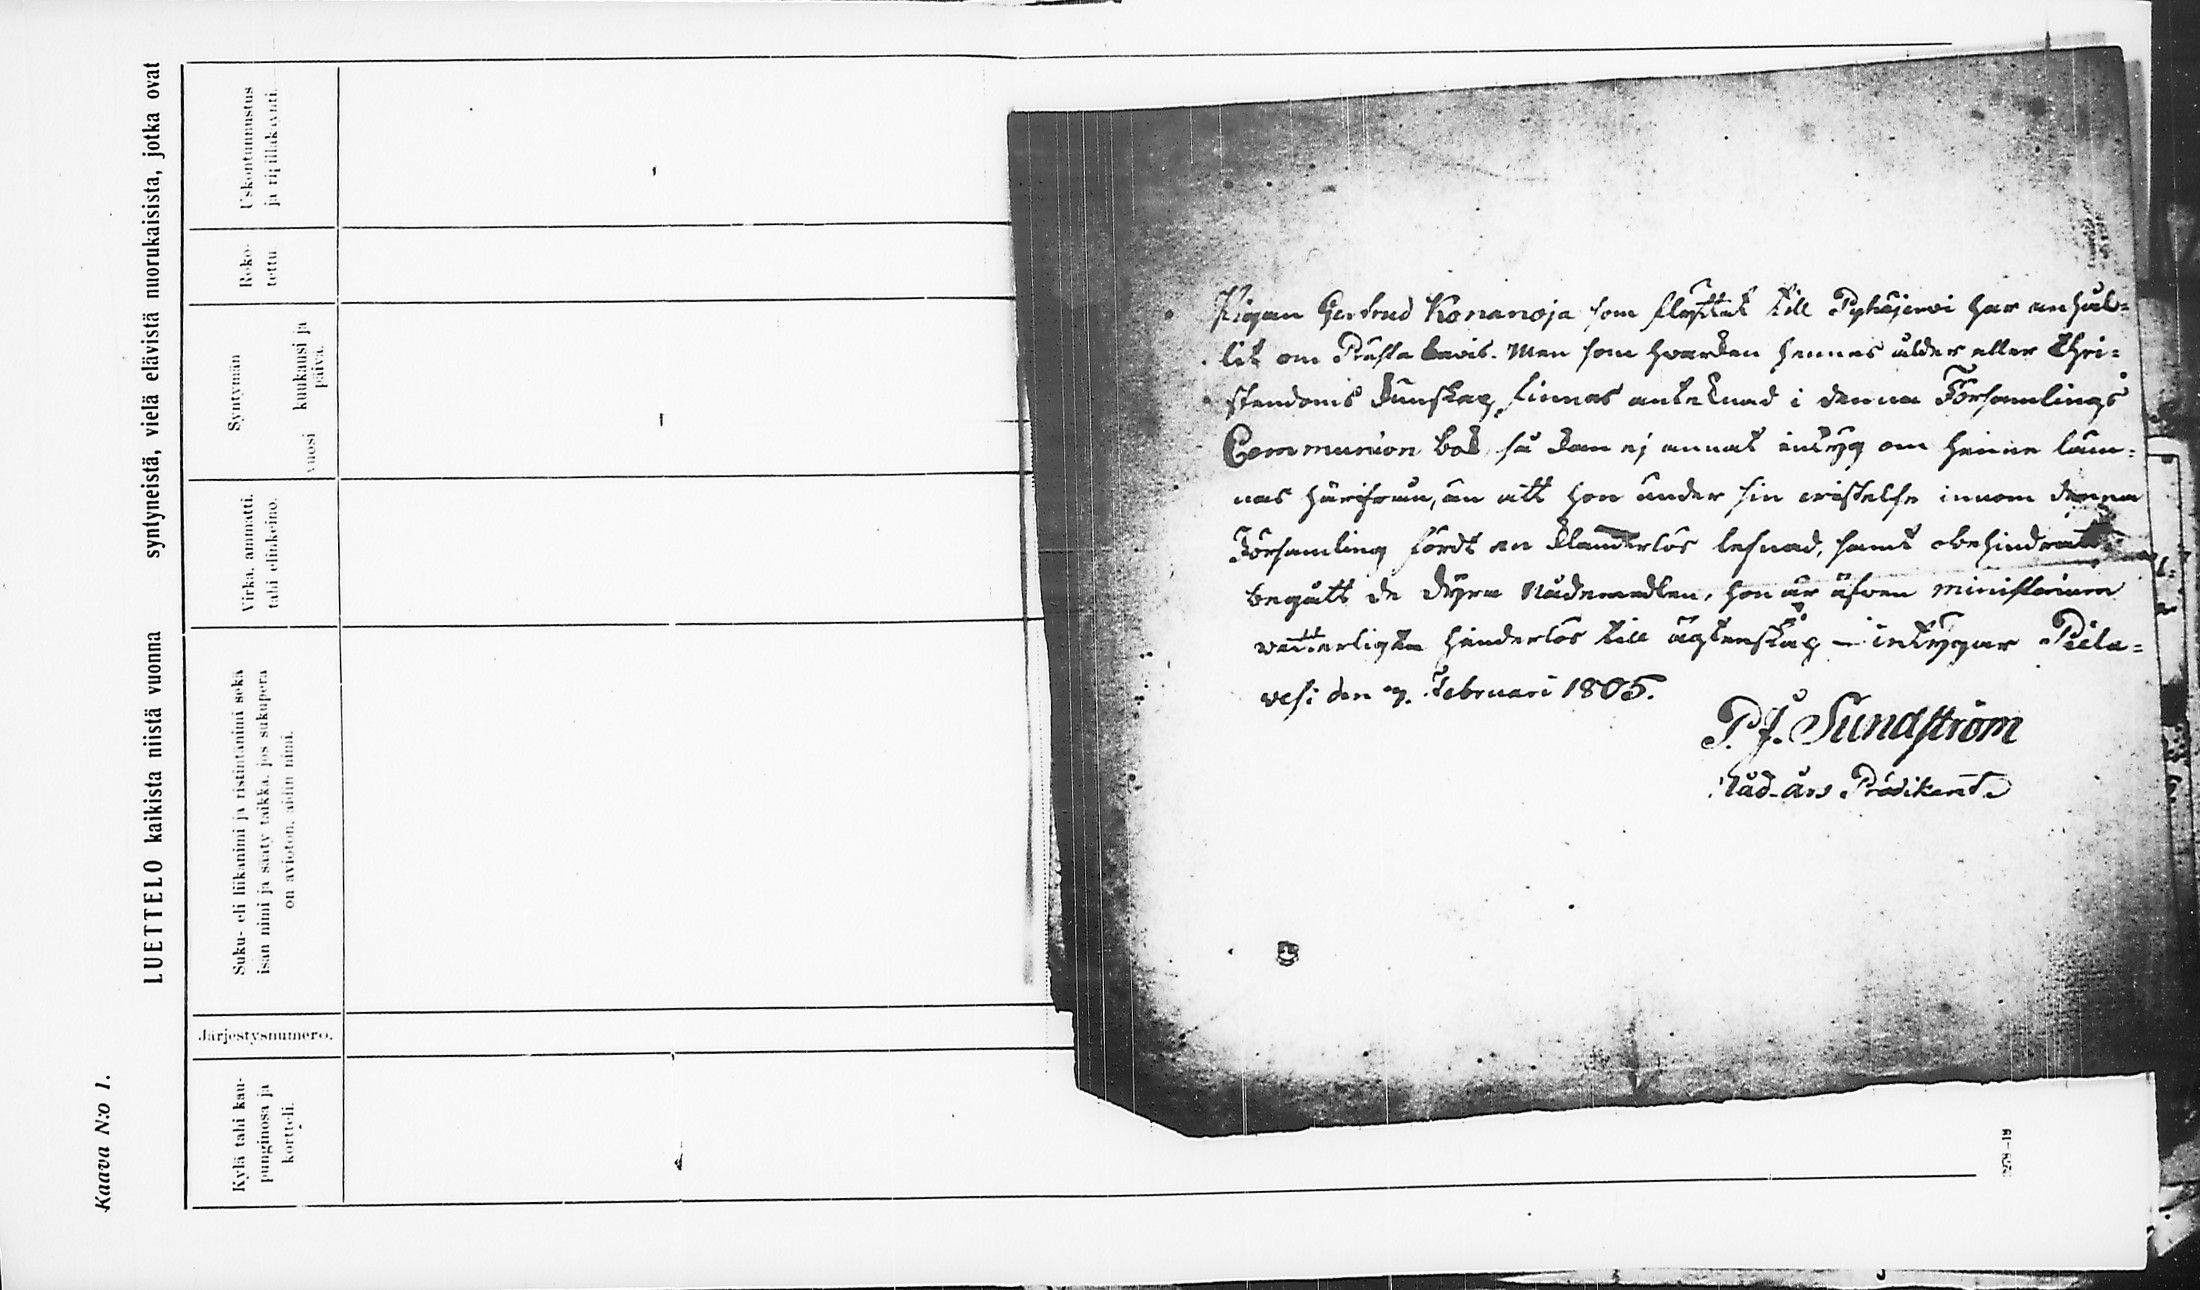 Kaava N:o 1.
LUETTELO kaikista niistä vuonna syntyneistä, vielä elävistä nuorukaisista, jotka ovat
Kylä tahi kau-
punginosa ja
kortteli.
Järjestysnumero.
Suku- eli liikanimi ja ristintänimi sekä
isän nimi ja sääty taikka, jos sukuperä
on avioton, äidin nimi.
Virka, ammatti,
tahi elinkeino.
Syntymän
vuosi kuukausi ja
päivä.
Roko-
tettu
Uskontunnustus
ja ripilläkäynti.
Pigan Gertrud Konanoja som flyttat till Pyhäjerwi har anhål-
lit om Prästa bevis. Men som hvarken hennes ålder eller Chri-
stendoms kunskap finnas anteknad i denna Församlings
Communion bok, så kan ej annat intyg om henne läm-
nas härifrån, än att hon under sin vistelse innom denna
Församling fördt en klanderlös lefnad, samt obehindrat
begått de dyra Nådemedlen, hon är äfven ministerium
vetterligen hinderlös till ägtenskap – intygar Piela-
vesi den 7. Februari 1805.
P. J. Sundström
Nåd-års Predikant.